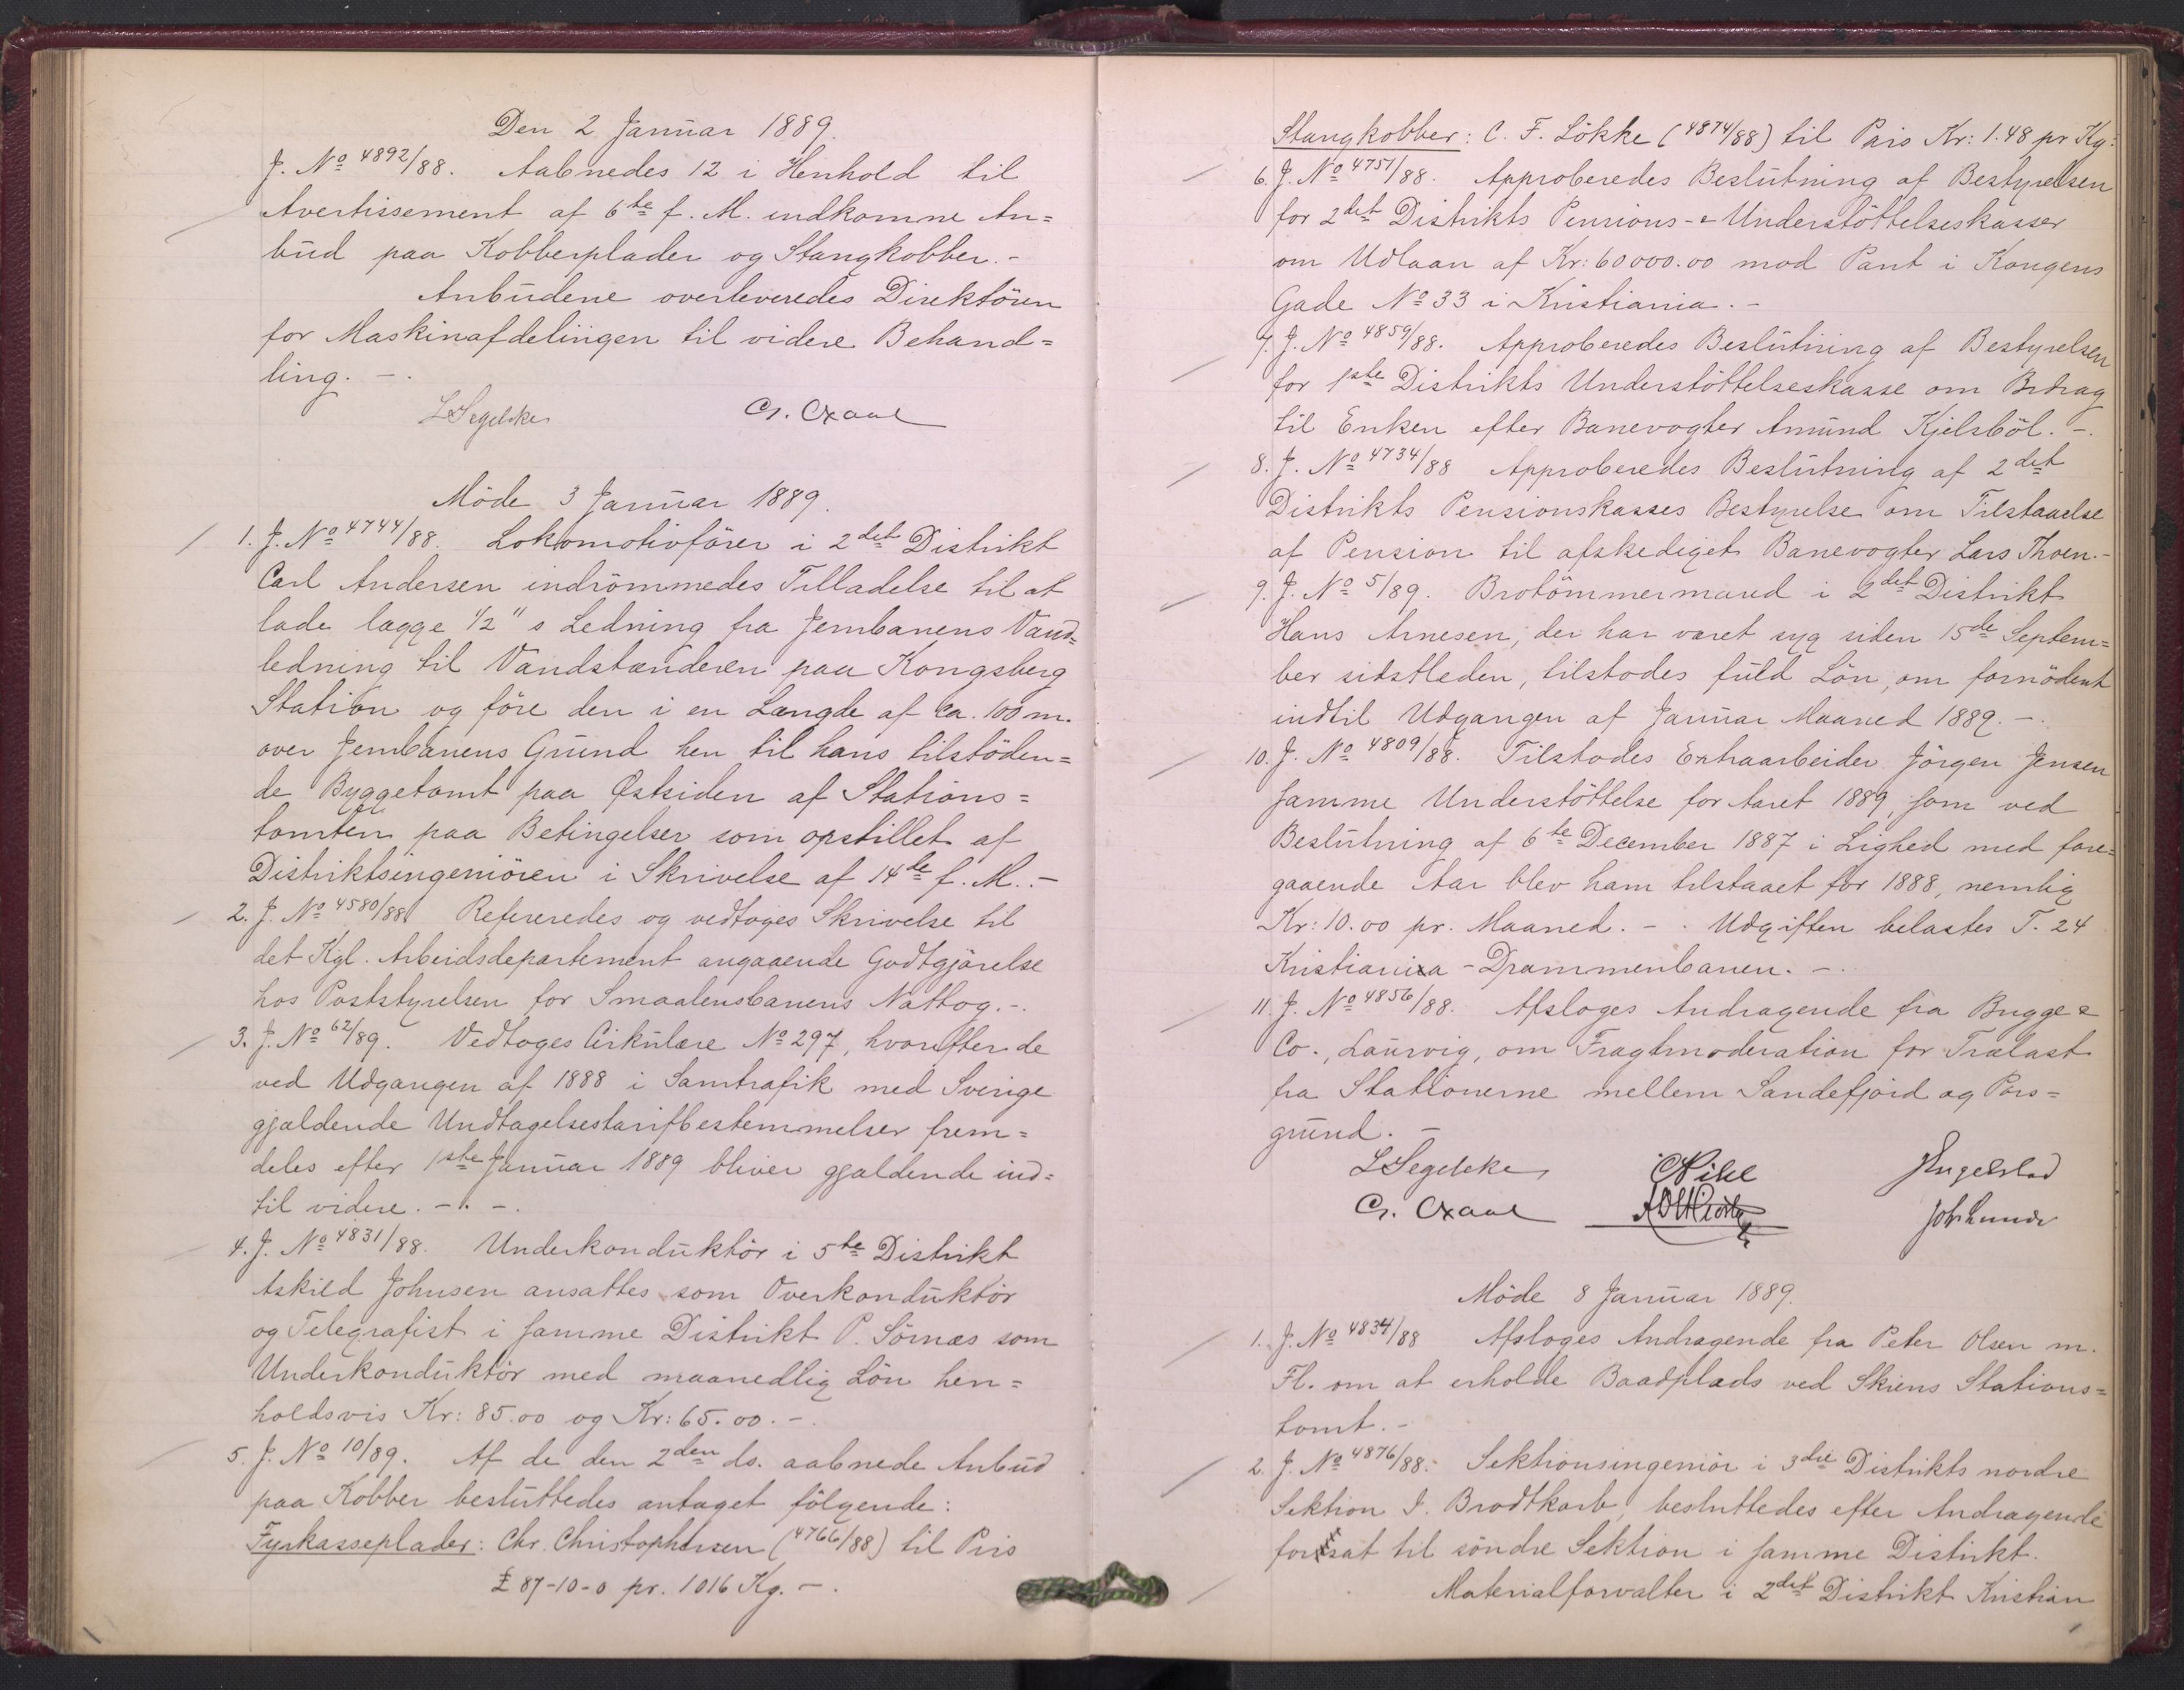 Den 2 Januar 1889.
J. No 4892/88. Aabnedes 12 i Henhold til
Avertissement af 6te f. M. indkomne An=
bud paa Kobberplader og Stangkobber. -
Anbudene overleveredes Direktören
for Maskinafdelingen til videre Behand=
ling. -
L Segelcke Cr. Oxaal
Möde 3 Januar 1889.
1. J. No 4744/88. Lokomotivförer i 2det Distrikt
Carl Andersen indrömmedes Tilladelse til at
lade lægge 1/2" s Ledning fra Jernbanens Vand=
ledning til Vandstænderen paa Kongsberg
Station og före den i en Længde af ca. 100 m.
over Jernbanens Grund hen til hans tilstöden=
de Byggetomt paa Østsiden af Stations=
tomten paa Betingelser som opstillet af
Distriktsingeniören i Skrivelse af 14de f. M. -
2. J. No 4580/88. Refereredes og vedtoges Skrivelse til
det Kgl. Arbeidsdepartement angaaende Godtgjörelse
hos Poststyrelsen for Smaalensbanens Nattog. -.
3. J. No 62/89. Vedtoges Cirkulære No 297, hvorefter de
ved Udgangen af 1888 i Samtrafik med Sverige
gjældende Undtagelsestarifbestemmelser frem=
deles efter 1ste Januar 1889 bliver gjældende ind=
til videre. -. -.
4. J. No 4831/88. Underkonduktör i 5te Distrikt
Askild Johnsen ansattes som Overkonduktör
og Telegrafist i samme Distrikt P. Sörnæs som
Underkonduktör med maanedlig Lön hen=
holdsvis Kr: 85.00 og Kr: 65.00. -.
5. J. No 10/89. Af de den 2den ds. aabnede Anbud
paa Kobber besluttedes antaget fölgende:
Fyrkasseplader: Chr. Christophersen (4766/88) til Pris
£ 87-10-0 pr. 1016 Kg. -.
Stangkobber: C. F. Lökke (4874/88) til Pris Kr: 1.48 pr Kg:
6. J. No 4751/88. Approberedes Beslutning af Bestyrelsen
for 2det Distrikts Pensions- & Understöttelseskasser
om Udlaan af Kr: 60000.00 mod Pant i Kongens
Gade No 33 i Kristiania. -
7. J. No 4859/88. Approberedes Beslutning af Bestyrelsen
for 1ste Distrikts Understöttelseskasse om Bidrag
til Enken efter Banevogter Amund Kjelsböl. -.
8. J. No 4734/88 Approberedes Beslutning af 2det
Distrikts Pensionskasses Bestyrelse om Tilstaaelse
af Pension til afskediget Banevogter Lars Thoen. -
9. J. No 5/89. Brotömmermand i 2det Distrikt
Hans Arnesen, der har været syg siden 15de Septem=
ber sidstleden, tilstodes fuld Lön, om fornödent
indtil Udgangen af Januar Maaned 1889. -.
10. J. No 4809/88. Tilstodes Extraarbeider Jörgen Jensen
samme Understöttelse for Aaret 1889, som ved
Beslutning af 6te December 1887 i Lighed med fore=
gaaende Aar blev ham tilstaaet for 1888, nemlig
Kr: 10.00 pr. Maaned. - . Udgiften belastes T. 24
Kristiania - Drammenbanen. -.
11. J. No 4856/88. Afsloges Andragende fra Bugge &
Co., Laurvig, om Fragtmoderation for Trælast
fra Stationerne mellem Sandefjord og Pors=
grund. -
L Segelcke C Pihl J Engelstad
Cr. Oxaal Joh Lunde
Möde 8 Januar 1889.
1. J. No 4834/88 Afsloges Andragende fra Peter Olsen m.
Fl. om at erholde Baadplads ved Skiens Stations=
tomt. -
2. J. No 4876/88. Sektionsingeniör i 3die Distrikts nordre
Sektion J. Brodtkorb, besluttedes efter Andragende
forsat til söndre Sektion i samme Distrikt.
Materialforvalter i 2det Distrikt Kristian